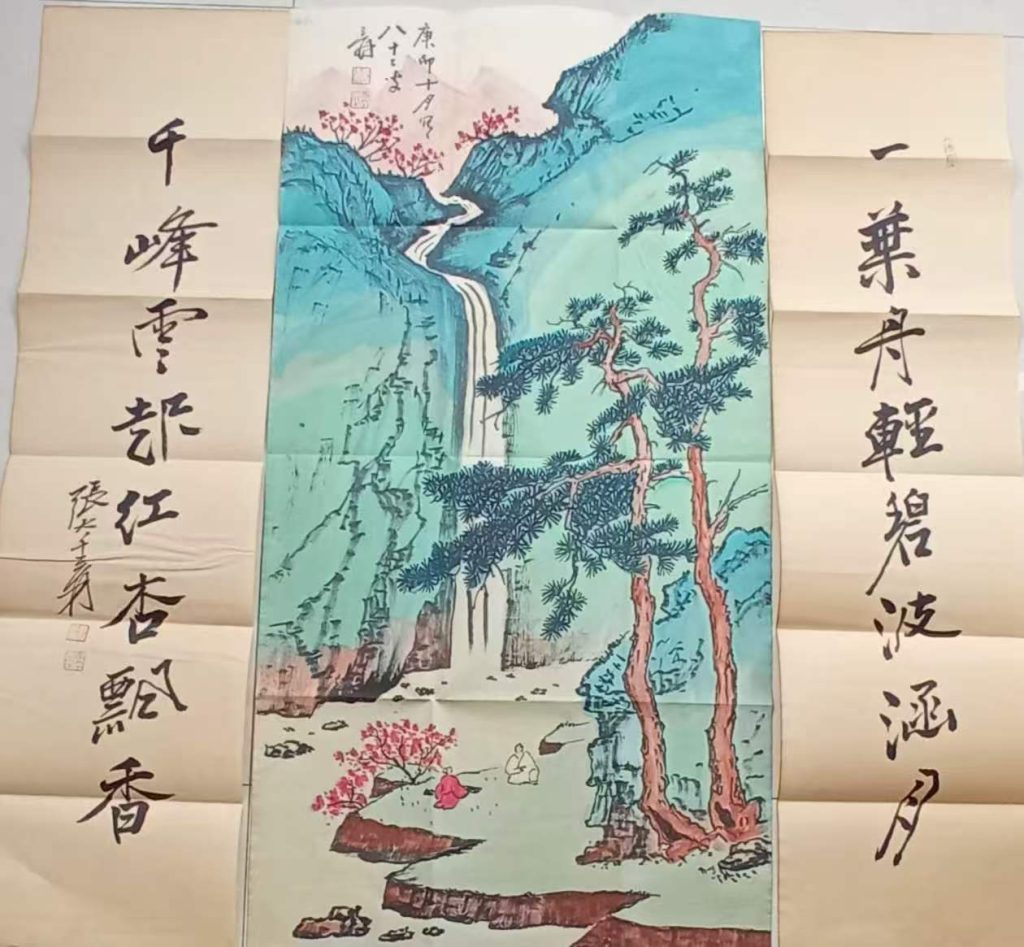 一葉舟輕碧波涵月
庚申十月写
八十二叟
爰
千峰雲起红杏飄香
張大千爰